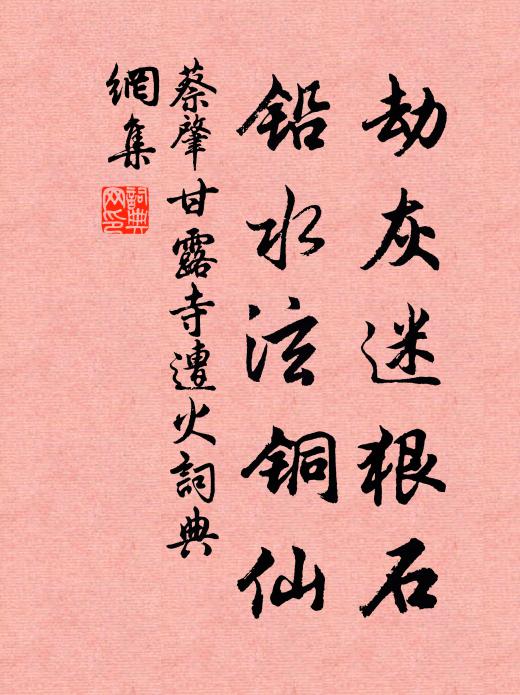 劫灰迷狠石
铅水泫铜仙
蔡肇甘露寺遭火詞典
網集
詞典
网印